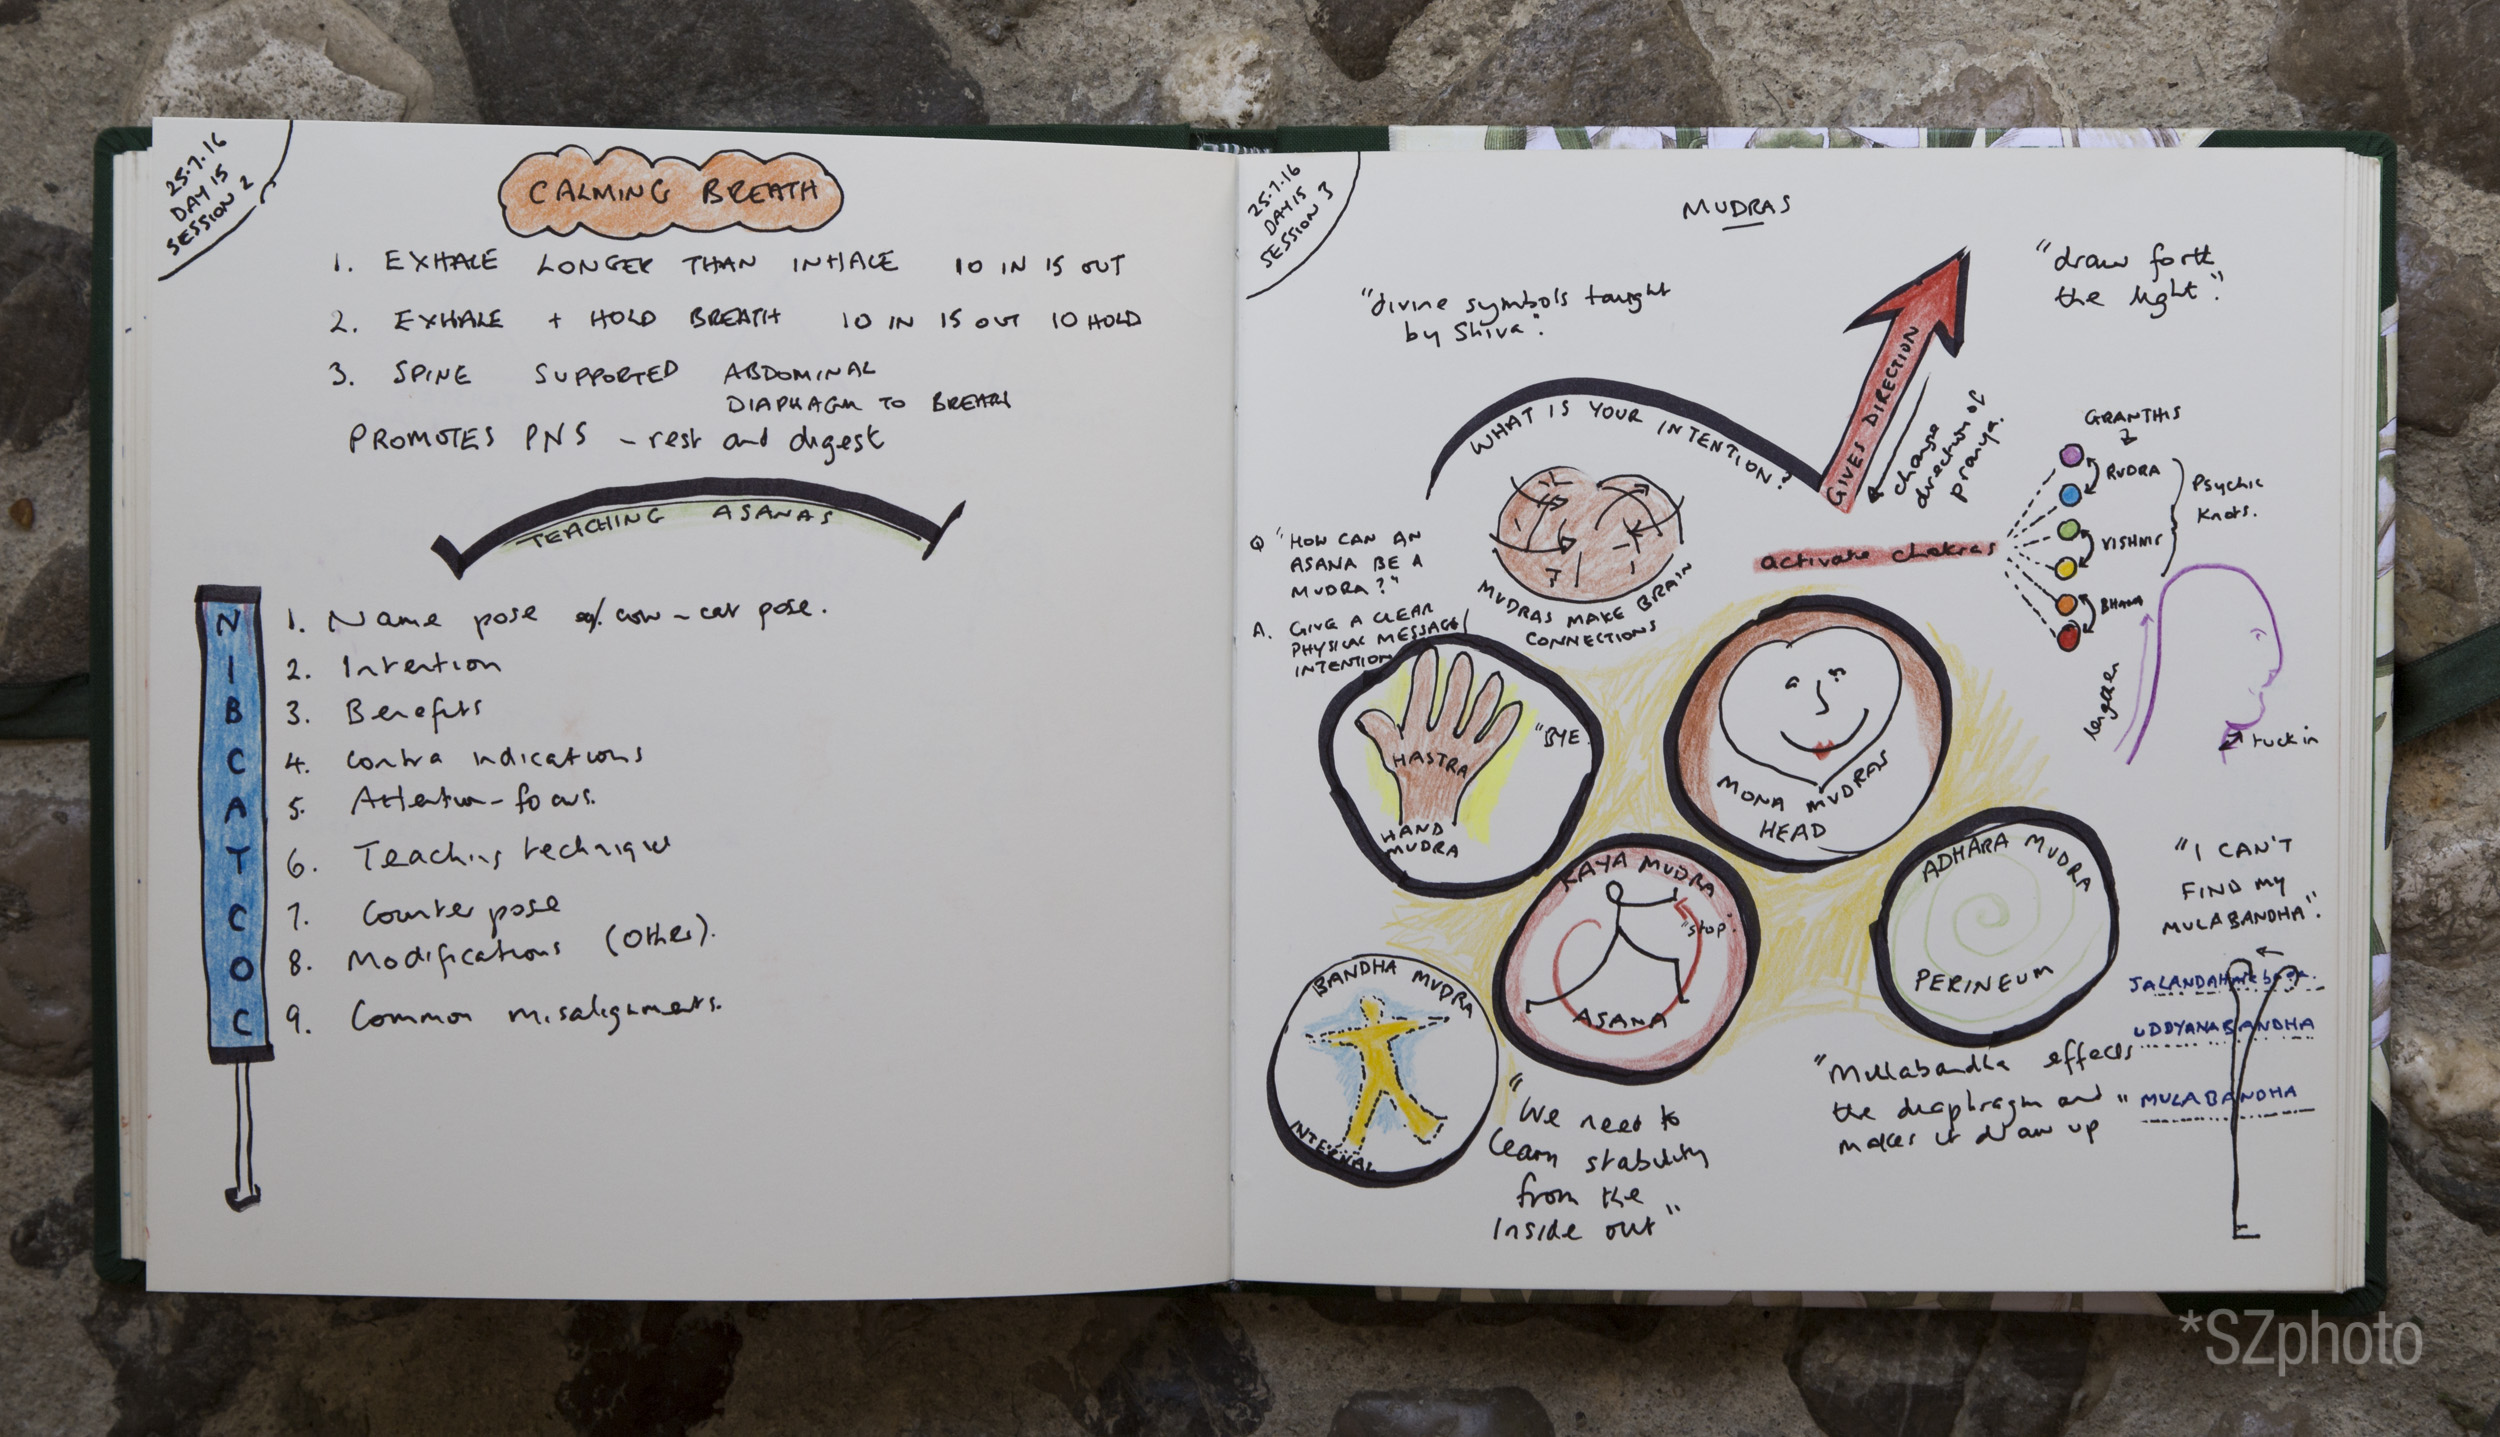 25.7.16
DAY 15
SESSION 2
CALMING BREATH
1. EXHALE LONGER THAN INHALE 10 IN 15 OUT
2. EXHALE + HOLD BREATH 10 IN 15 OUT 10 HOLD
3. SPINE SUPPORTED ABDOMINAL
DIAPHAGM TO BREATH
PROMOTES PNS - rest and digest
TEACHING ASANAS
N
I
B
C
A
T
C
O
C
1. Name pose eg. cow-cat pose.
2. Intention
3. Benefits
4. Contra indications
5. Attention-focus.
6. Teaching technique
7. Counter pose
8. Modifications (other).
9. Common misalignments.
25.7.16
DAY 15
SESSION 3
MUDRAS
"divine symbols taught
by Shiva".
"draw forth
the light".
WHAT IS YOUR INTENTION?
GIVES DIRECTION
change
direction of
pranya.
MUDRAS MAKE BRAIN
CONNECTIONS
Q "HOW CAN AN
ASANA BE A
MUDRA?"
A. GIVE A CLEAR
PHYSICAL MESSAGE/
INTENTION
activate chakras
GRANTHIS
RUDRA
VISHNU
BHAMA
Psychic
Knots.
lengthen
tuck in
HASTRA
"BYE.
HAND
MUDRA
MONA MUDRAS
HEAD
KAYA MUDRA
"stop".
ASANA
ADHARA MUDRA
PERINEUM
BANDHA MUDRA
INTERNAL
"We need to
learn stability
from the
inside out"
"I CAN'T
FIND MY
MULABANDHA".
UDDYANABANDHA
MULABANDHA
"Mullabandha effects
the diaphragm and
makes it draw up"
*SZphoto